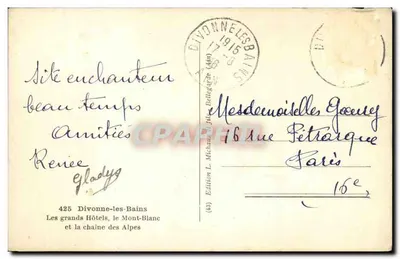 DIVONNE LES BAINS
1915
17-8
Site enchanteur
beau temps
Amitiés
Renée
Gladys
Mesdemoiselles
76 Rue Pétrarque
Paris
16e
425 Divonne-les-Bains
Les grands Hôtels, le Mont-Blanc
et la chaîne des Alpes
(43) Edition L. Michaux, Bellegarde (Ain)
CPARAMA